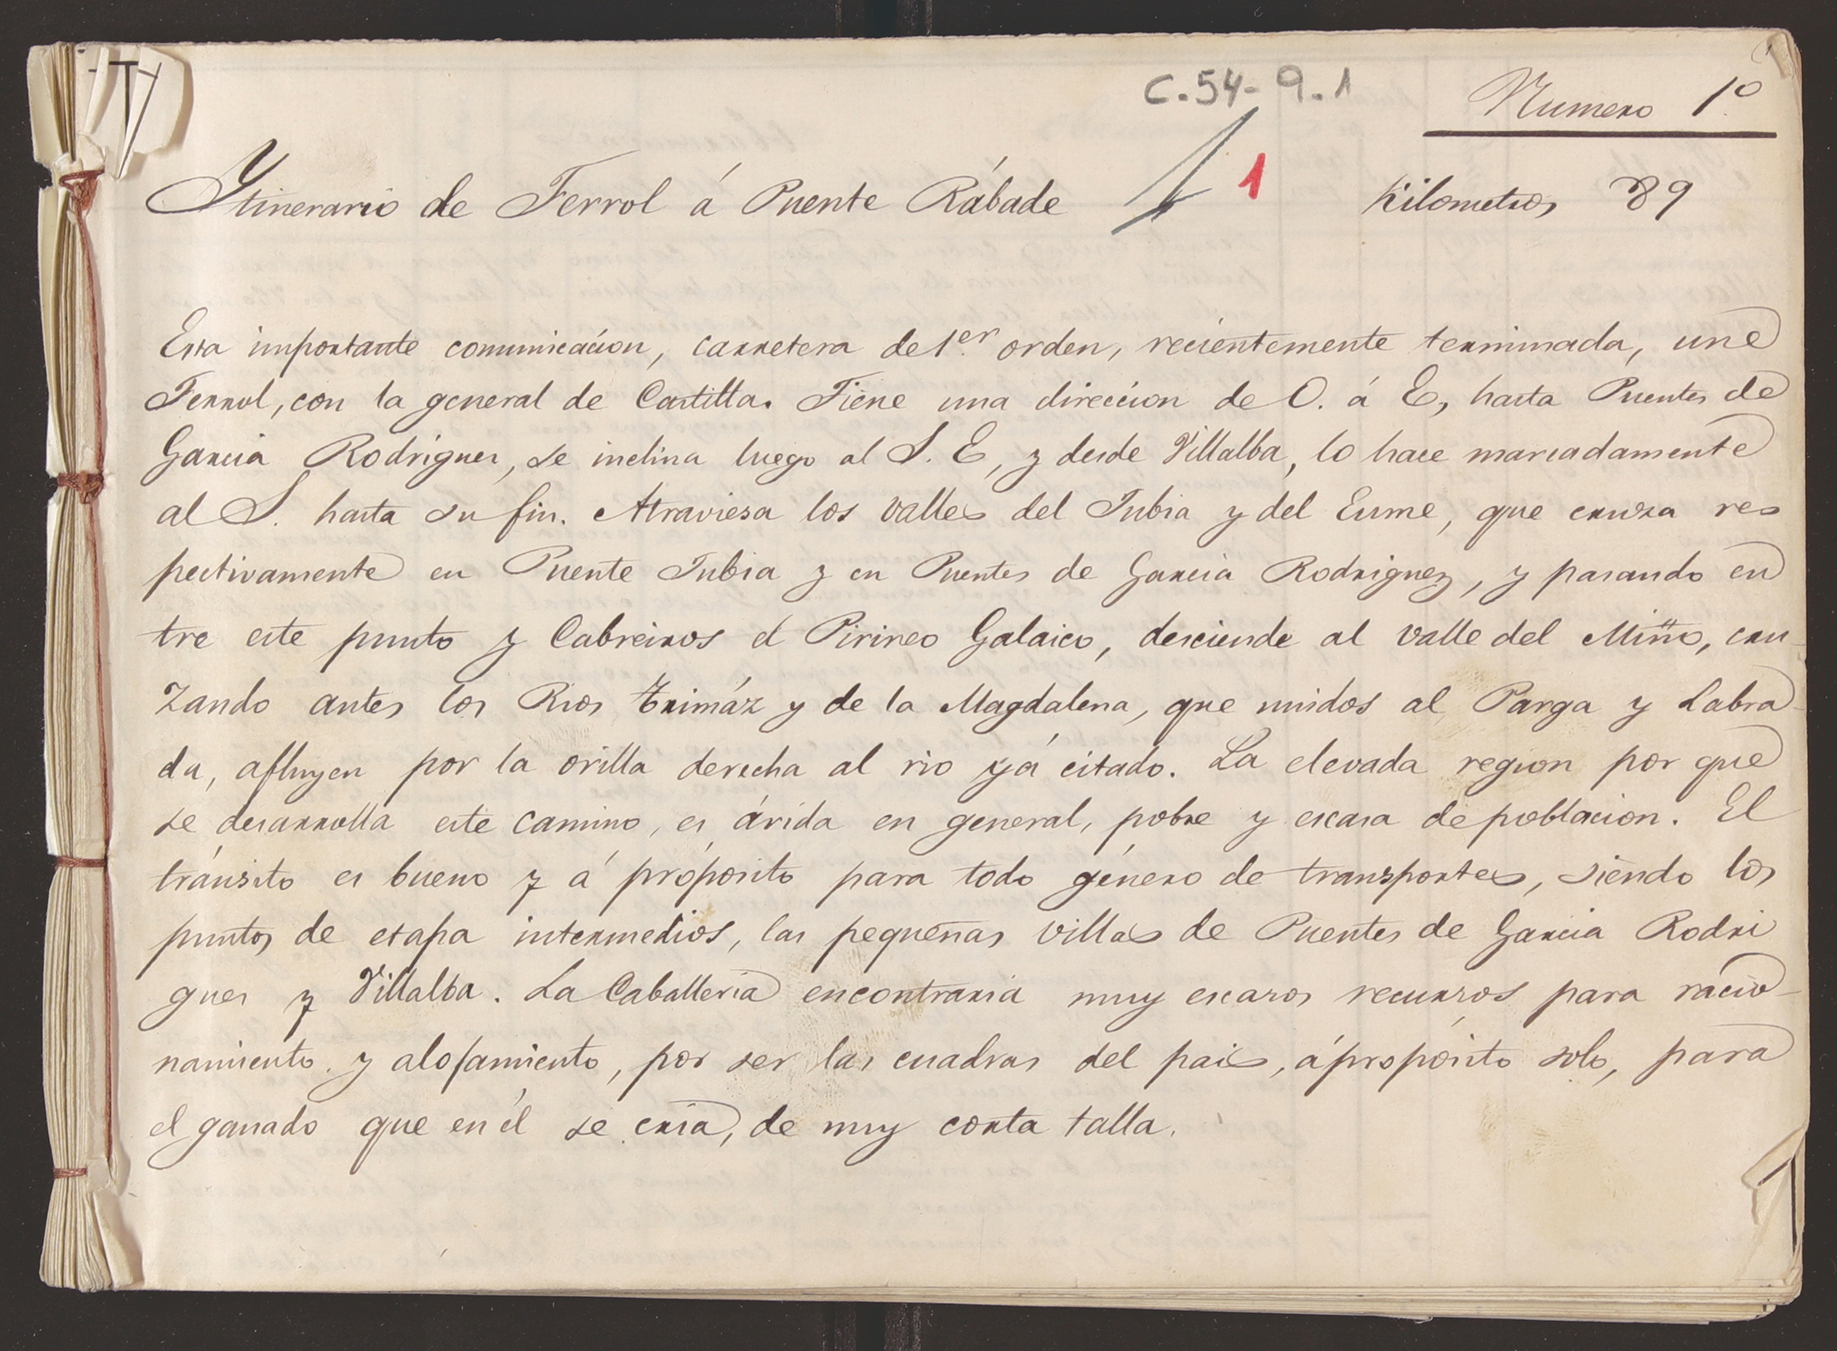 C.54-9.1
Numero 1º
Ytinerario de Ferrol á Puente Rábade
1
Kilometros 89
Esta importante comunicación, carretera de 1er orden, recientemente terminada, une
Ferrol, con la general de Castilla. Tiene una direccion de O. á E, hasta Puentes de
Garcia Rodriguez, se inclina luego al S. E, y desde Villalba, lo hace marcadamente
al S. hasta su fin. Atraviesa los valles del Jubia y del Eume, que cruza res
pectivamente en Puente Jubia y en Puentes de Garcia Rodriguez, y pasando en
tre este punto y Cabreiros el Pirineo Galaico, desciende al valle del Miño, cru
zando antes los Rios Trimáz y de la Magdalena, que unidos al Parga y Labra-
da, afluyen por la orilla derecha al rio yá citado. La elevada region por que
se desarrolla este camino, es árida en general, pobre y escasa de poblacion. El
tránsito es bueno y á próposito para todo género de transportes, siendo los
puntos de etapa intermedios, las pequeñas villas de Puentes de Garcia Rodri
guez y Villalba. La Caballeria encontraria muy escasos recursos para racio-
namiento y alojamiento, por ser las cuadras del pais, ápropósito solo, para
el ganado que en él se cria, de muy corta talla.